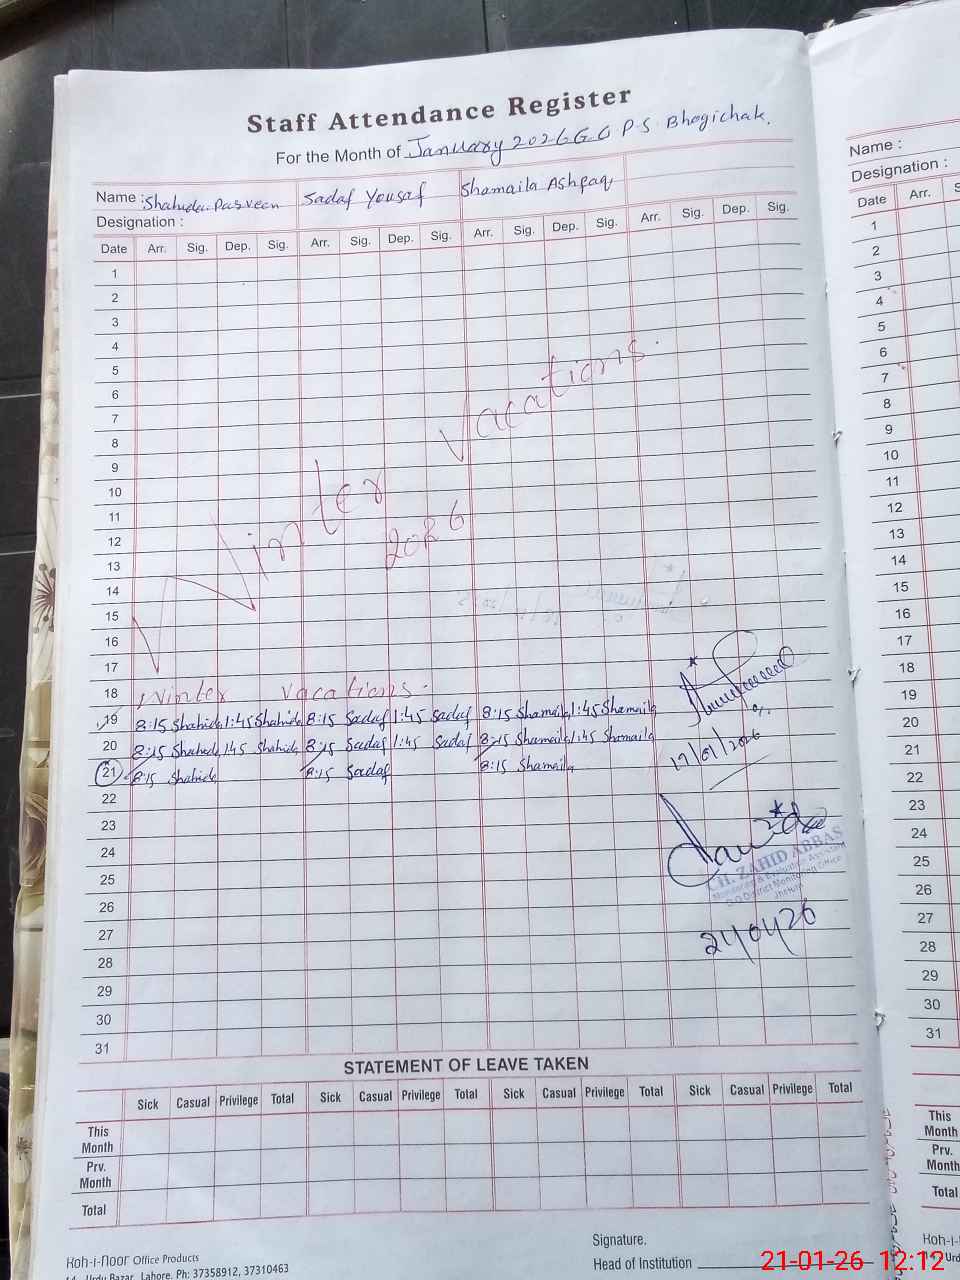 Staff Attendance Register
For the Month of January 2026 G.G P.S. Bhogichak.
Name : Shahida Parveen Sadaf Yousaf Shamaila Ashfaq
Designation :
Date Arr. Sig. Dep. Sig. Arr. Sig. Dep. Sig. Arr. Sig. Dep. Sig. Arr. Sig. Dep. Sig.
1
2
3
4
5
6
7
8
9
10
11
12
13
14
15
16
17
Winter Vacations.
2026
18 Winter vacations.
19 8:15 Shahida 1:45 Shahida 8:15 Sadaf 1:45 Sadaf 8:15 Shamaila 1:45 Shamaila
20 8:15 Shahida 1:45 Shahida 8:15 Sadaf 1:45 Sadaf 8:15 Shamaila 1:45 Shamaila
21 8:15 Shahida 8:15 Sadaf 8:15 Shamaila
17/01/2026
22
23
24
25
26
27
28
29
30
31
CH. ZAHID ABBAS
Monitoring & Evaluation Assistant
O/O District Monitoring Office
Jhelum
21/01/26
STATEMENT OF LEAVE TAKEN
Sick Casual Privilege Total Sick Casual Privilege Total Sick Casual Privilege Total Sick Casual Privilege Total
This Month
Prv. Month
Total
Signature.
Head of Institution
Koh-i-Noor Office Products
14, Urdu Bazar, Lahore. Ph: 37358912, 37310463
Name :
Designation :
Date Arr.
1
2
3
4
5
6
7
8
9
10
11
12
13
14
15
16
17
18
19
20
21
22
23
24
25
26
27
28
29
30
31
This Month
Prv. Month
Total
21-01-26 12:12